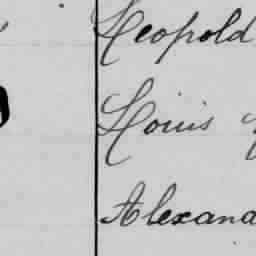 Leopold
Louis
Alexand